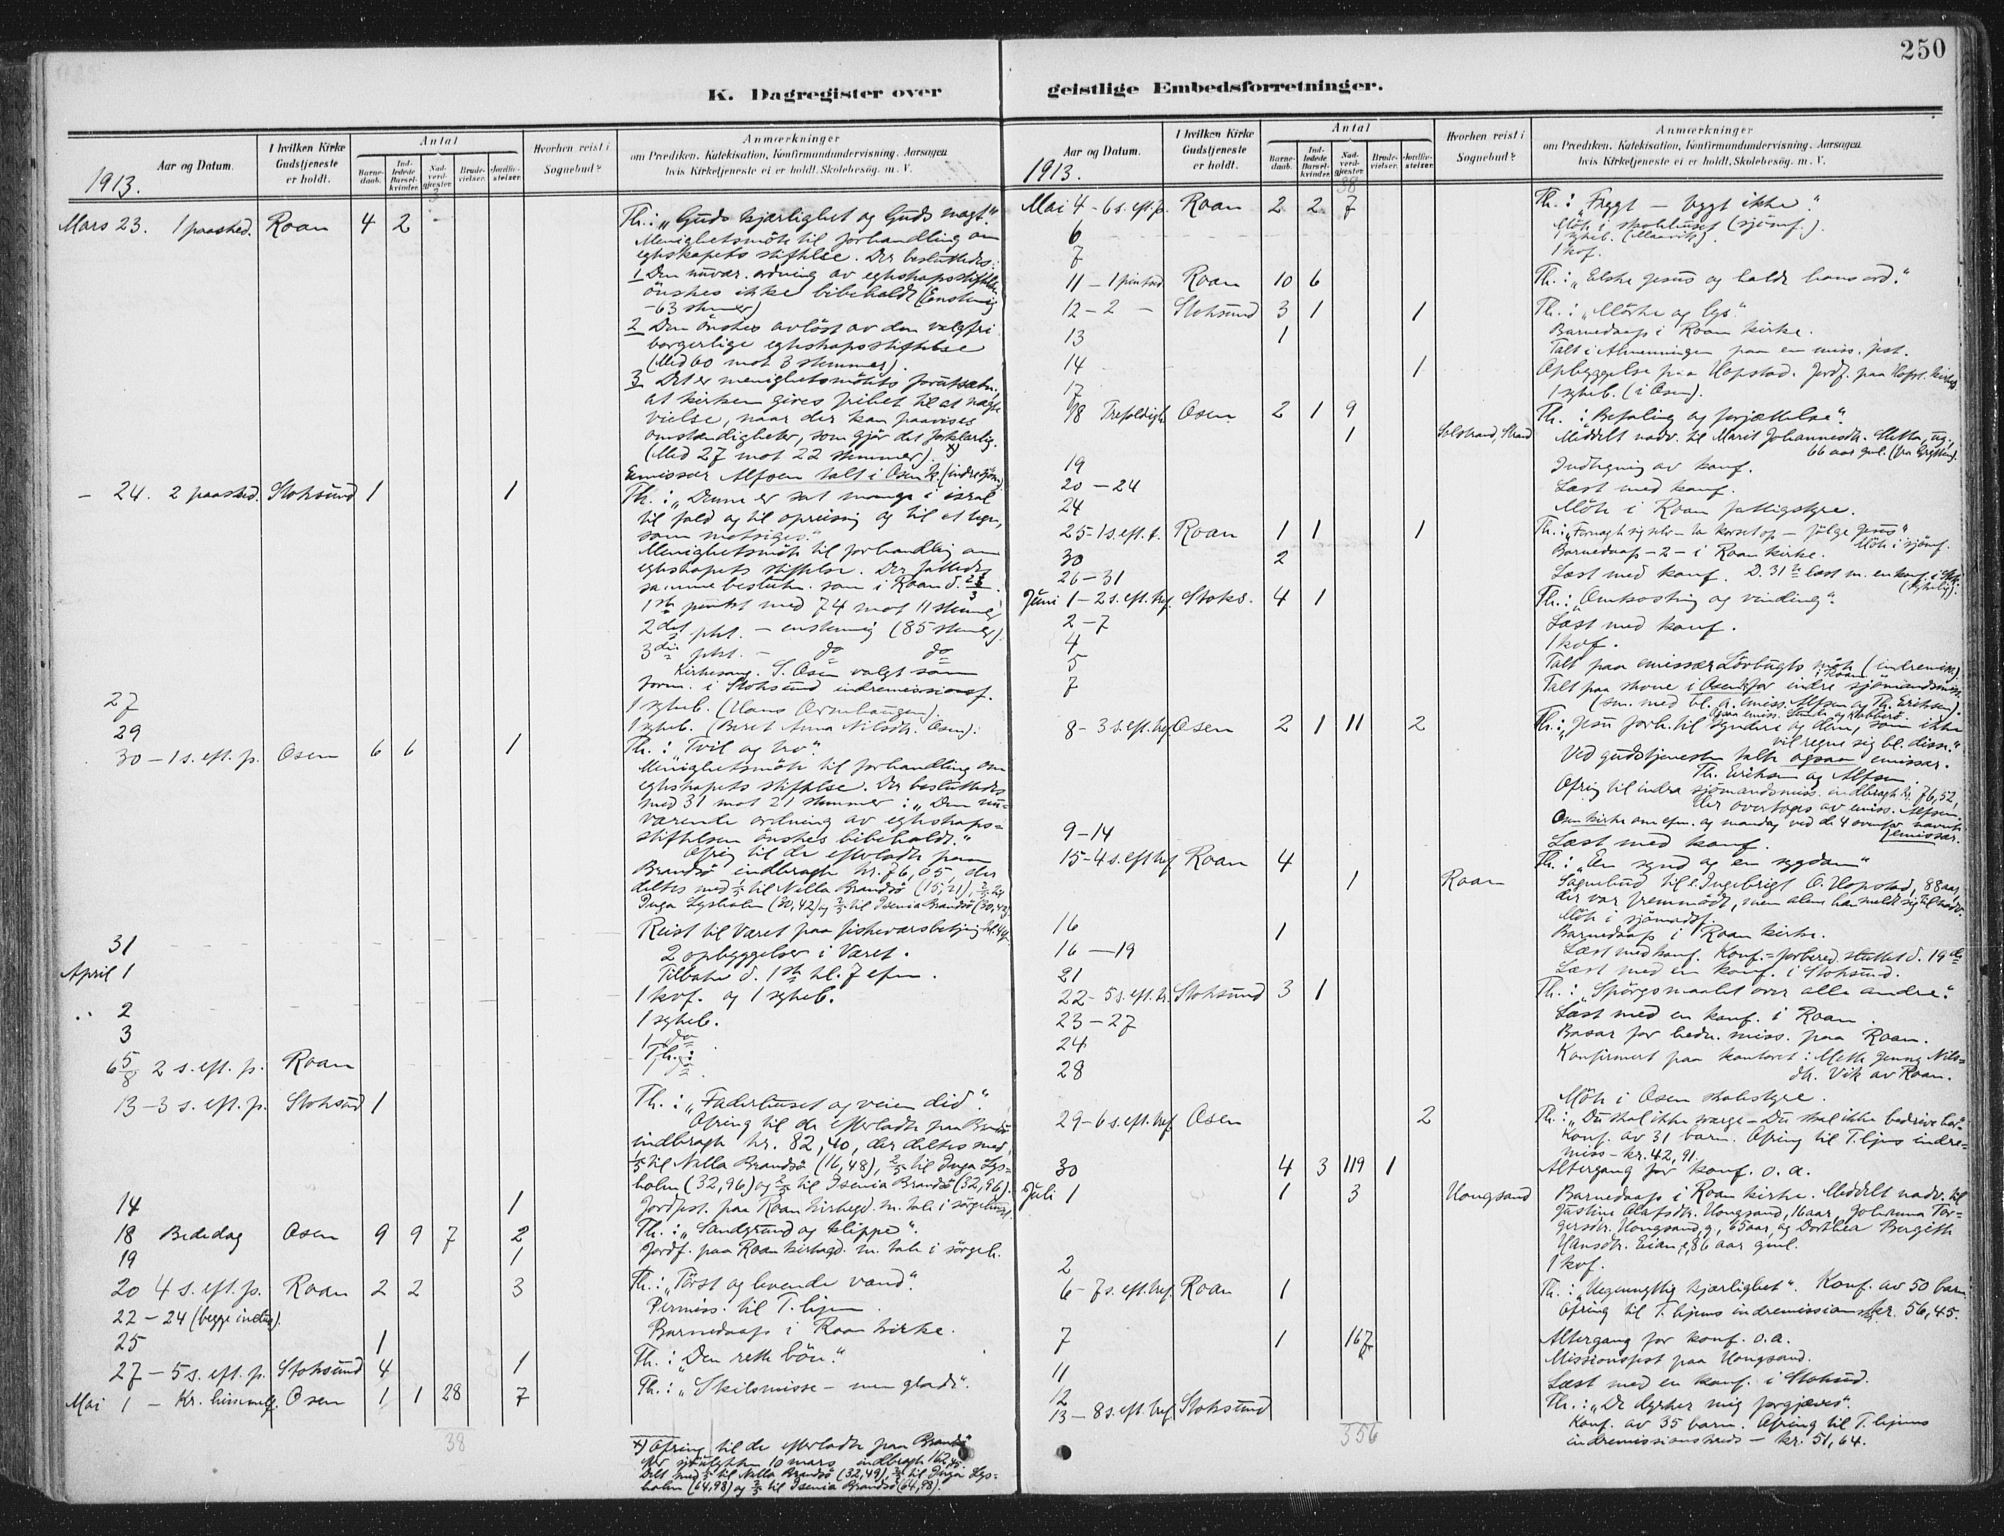 250
K. Dagregister over
geistlige Embedsforretninger.
Aar og Datum.
I hvilken Kirke Gudstjeneste er holdt.
Antal
Barnedaab.
Indledede Barselkvinder.
Nadverdgjæster.
Brudevielser.
Jordfæstelser.
Hvorhen reist i Sognebud?
Anmærkninger
om Prædiken. Katekisation, Konfirmandundervisning. Aarsagen
hvis Kirketjeneste ei er holdt. Skolebesøg. m. V.
1913.
3
Mars 23. 1 paasked. Roan 4 2 - Th.: „Guds kjærlighet og Guds magt."
Menighetsmöte til forhandling om
egteskapets stiftelse. Der besluttedes:
1 Den nuvær. ordning av egteskapsstiftelsen
önskes ikke bibeholdt (Enstemig
- 63 stemmer)
2 Den önskes avløst av den valgfri
borgerlige egteskapsstiftelse
(Med 60 mot 3 stemmer).
3 Det er menighetsmötets forutsætn.
at kirken gives frihet til at nægte
vielse, naar der kan paavises
omstændigheter, som gjör det forklarlig.
(Med 27 mot 22 stemmer). x)
Emissær Alfsen talt i Osen k. (indre sjöm)
- 24. 2 paasked. Stoksund 1 1 Th.: „Denne er sat mange i israel
til fald og til opreisning og til et tegn,
som motsiges."
Menighetsmöte til forhandling om
egteskapets stiftelse. Der fattedes
samme beslutn. som i Roan d. 23/3.
1ste punkt med 74 mot 11 stemmer
2det pkt. - enstemig (85 stemmer).
3die pkt. - do do
Kirkesang. S. Osen valgt som
form. i Stoksund indremissionsf.
27 1 sykeb. (Hans Ormhaugen).
29 1 sykeb. (Beret Anna Nilsdtr. Osen).
30 - 1 s. eft. p. Osen 6 6 1 Th.: „Tvil og tro".
Menighetsmöte til forhandling om
egteskapets stiftelse. Der besluttedes
med 31 mot 21 stemmer: „Den nu-
værende ordning av egteskaps-
stiftelsen önskes bibeholdt."
Ofring til de efterladte paa
Brandsö indbragte kr. 76,05, der
deltes med 1/5 til Nilla Brandsö (15,21), 2/5 til
Inga Lysholm (30,42) og 2/5 til Isenia Brandsö (30,42).
31 Reist til Været paa fiskeværsbetjening kl. 4 ef.
April 1 2 opbyggelser i Været.
Tilbake d. 1ste kl. 7 efm.
2 1 kof. og 1 sykeb.
3 1 sykeb.
5 1 do
6 2 s. eft. p. Roan Th.:
8
13 - 3 s. eft. p. Stoksund 1 Th.: „Faderhuset og veien did".
Ofring til de efterladte paa Brandsö
indbragte kr. 82,40, der deltes med
1/5 til Nilla Brandsö (16,48), 2/5 til Inga Lys-
holm (32,96) og 2/5 til Isenia Brandsö (32,96).
14 1 Jordfest. paa Roan kirkegd. m. tale i sörgehuset.
18 Bededag Osen 9 9 7 2 Th.: „Sandgrund og klippe".
19 1 Jordf. paa Roan kirkegd. m. tale i sörgeh.
20 4 s. eft. p. Roan 2 2 3 Th.: „Törst og levende vand".
22 - 24 (begge incl.). Permiss. til T.hjem.
25 1 Barnedaap i Roan kirke.
27 - 5 s. eft. p. Stoksund 4 1 Th.: „Den rette bön."
Mai 1 - Kr. himmelf. Osen 1 1 28 7 Th.: „Skilsmisse - men glæde".
38
x) Ofring til de efterladte paa Brandsö
efter sjöulykken 10 mars indbragte 162,45.
Delt med 1/5 til Nilla Brandsö (32,49), 2/5 til Inga Lys-
holm (64,98) og 2/5 til Isenia Brandsö (64,98).
Aar og Datum.
I hvilken Kirke Gudstjeneste er holdt.
Antal
Barnedaab.
Indledede Barselkvinder.
Nadverdgjæster.
Brudevielser.
Jordfæstelser.
Hvorhen reist i Sognebud?
Anmærkninger
om Prædiken. Katekisation, Konfirmandundervisning. Aarsagen
hvis Kirketjeneste ei er holdt. Skolebesøg. m. V.
1913.
38
Mai 4 - 6 s. eft. p. Roan 2 2 7 Th.: „Frygt - frygt ikke."
Möte i skolehuset (sjömf.).
6 1 sykeb. (Maarvik).
7 1 kof.
11 - 1 pinsed. Roan 10 6 Th.: „Elske Jesus og holde hans ord."
12 - 2 - Stoksund 3 1 1 Th.: „Mörke og lys".
13 1 Barnedaap i Roan kirke.
Talt i Almenningen paa en miss. fest.
14 1 Opbyggelse paa Hopstad. Jordf. paa Hofst. kirkeg.
17 1 sykeb. (i Osen).
18 Trefoldigh. Osen 2 1 9 Th.: „Befaling og forjættelse".
1 Solstrand, Strand Meddelt nadv. til Marit Johannesdtr. Sletta, ug.,
66 aar gml.
19 Indtegning av konf.
20 - 24 Læst med konf.
24 Möte i Roan fattigstyre.
25 - 1 s. eft. t. Roan 1 1 1 Th.: „Fornegte sig selv - ta korset op - fölge Jesus"
30 2 Barnedaap - 2 - i Roan kirke. Möte i sjömf.
26 - 31 Læst med konf. D. 31te læst m. en konf. i Stoks.
(sykelig).
Juni 1 - 2 s. eft. tref. Stoks. 4 1 Th.: „Omkostning og vinding".
2 - 7 Læst med konf.
4 1 kof.
5 Talt paa emissær Lövbugts möte (indremiss)
i Roan
7 Talt paa stevne i Osen k. for indre sjömandsmiss.
(sm. med bl. a. emiss. Alfsen og Th. Eriksen).
8 - 3 s. eft. tref. Osen 2 1 11 2 Th.: „Jesu forh. til syndere og dem, som ikke
vil regne sig bl. disse."
Ved gudstjenesten talte ogsaa emissær.
Th. Eriksen og Alfsen.
Ofring til indre sjömandsmiss. indbragte kr. 76,52,
der overtoges av emiss. Alfsen.
Osen kirke om efm. og mandag ved de 4 ovenfor nævnte
emissær.
9 - 14 Læst med konf.
15 - 4 s. eft. tref. Roan 4 Th.: „En synd og en sygdom"
1 Roan Sognebud til Ingebrigt O. Hopstad, 88 aar,
der var fremmödt, uten at han meldt sig til nadv.
Möte i sjömandsf.
16 1 Barnedaap i Roan kirke.
16 - 19 Læst med konf. Konf.-forbered. sluttet d. 19de
21 Læst med en konf. i Stoksund.
22 - 5 s. eft. tr. Stoksund 3 1 Th.: „Spörgsmaalet over alle andre".
23 - 27 Læst med en konf. i Roan.
24 Basar for hedn. miss. paa Roan.
28 Konfirmert paa kontoret: Mette Jenny Nils-
dtr. Vik av Roan.
Möte i Osen skolestyre.
29 - 6 s. eft. tref. Osen 2 Th.: „Du skal ikke sværge - Du skal ikke bedrive hor".
Konf. av 31 barn. Ofring til T.hjems indre-
miss - kr. 42,91.
30 4 3 119 1 Altergang for konf. o. a.
Juli 1 1 3 Hongsand Barnedaap i Roan kirke. Meddelt nadv. til
Justine Olafsdtr. Hongsand, 16 aar, Johanna Tor-
gersdtr. Hongsand, g., 65 aar, og Dorthea Bergith
Hansdtr. Eian, e. 86 aar gml.
2 1 kof.
6 - 7 s. eft. tref. Roan 1 Th.: „Uegennyttig kjærlighet". Konf. av 50 barn.
Ofring til T.hjems indremission kr. 56,45.
7 1 167 Altergang for konf. o. a.
Missionsfest paa Hongsand.
11 Læst med en konf. i Stoksund.
12
13 - 8 s. eft. tref. Stoksund Th.: „De dyrker mig forgjæves".
Konf. av 35 barn. Ofring til T.hjems
indremissionskreds - kr. 51,64.
356